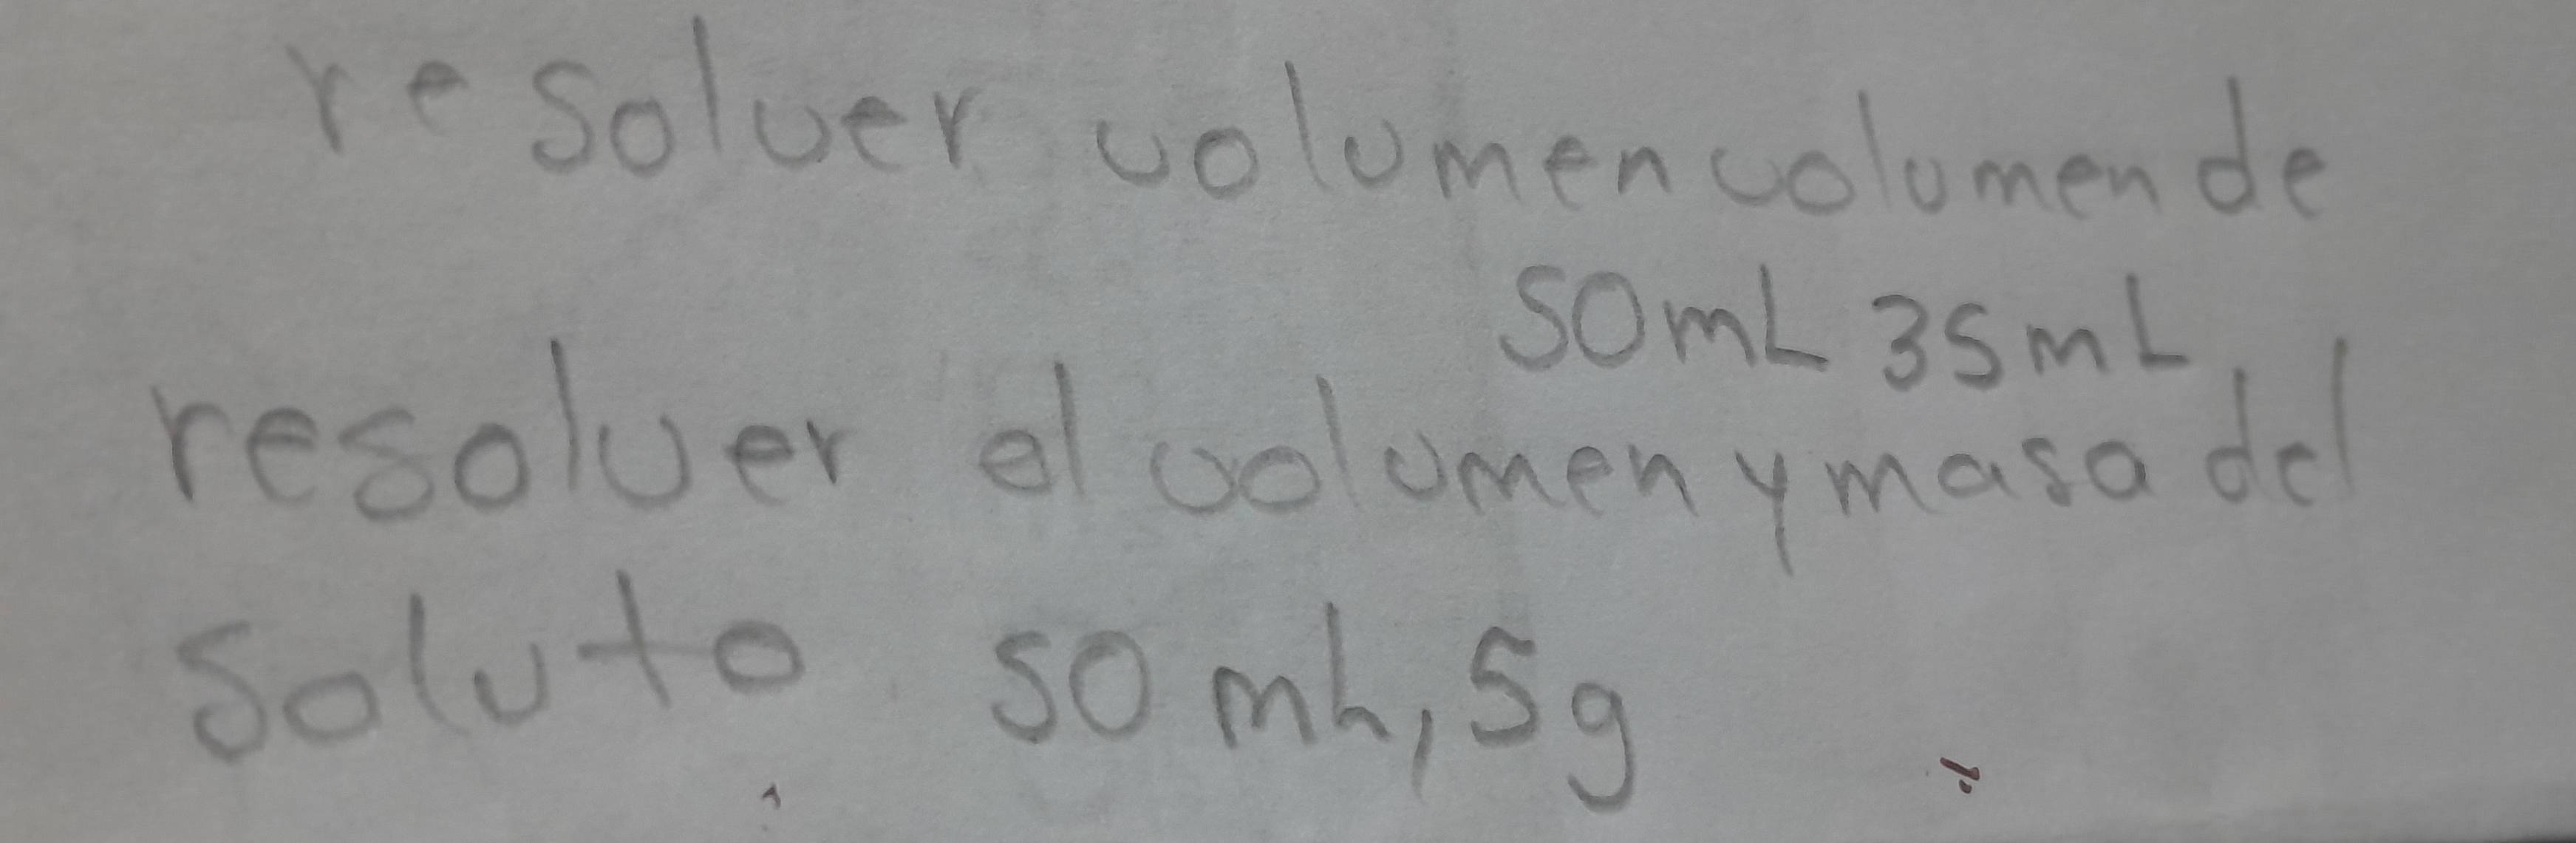 resolver volumen volumen de
50mL 35mL
resolver el volumen y masa del
soluto 50 mL, 5g